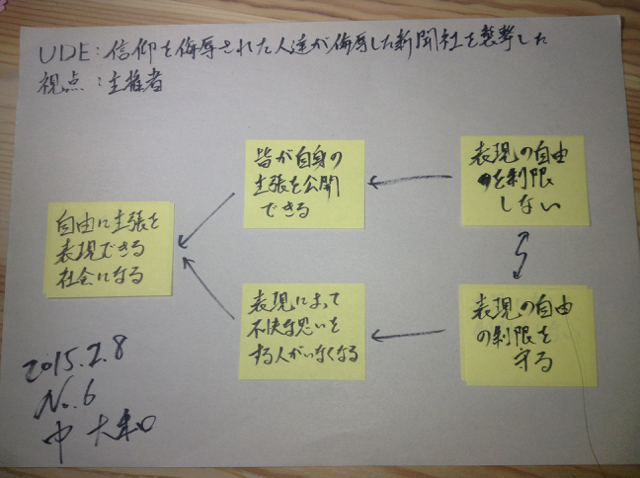 UDE:信仰を侮辱された人達が侮辱した新聞社を襲撃した
視点:主権者
皆が自身の
主張を公開
できる
表現の自由
を制限
しない
自由に主張を
表現できる
社会になる
表現によって
不快な思いを
する人がいなくなる
表現の自由
の制限を
守る
2015.2.8
No.6
中 大和